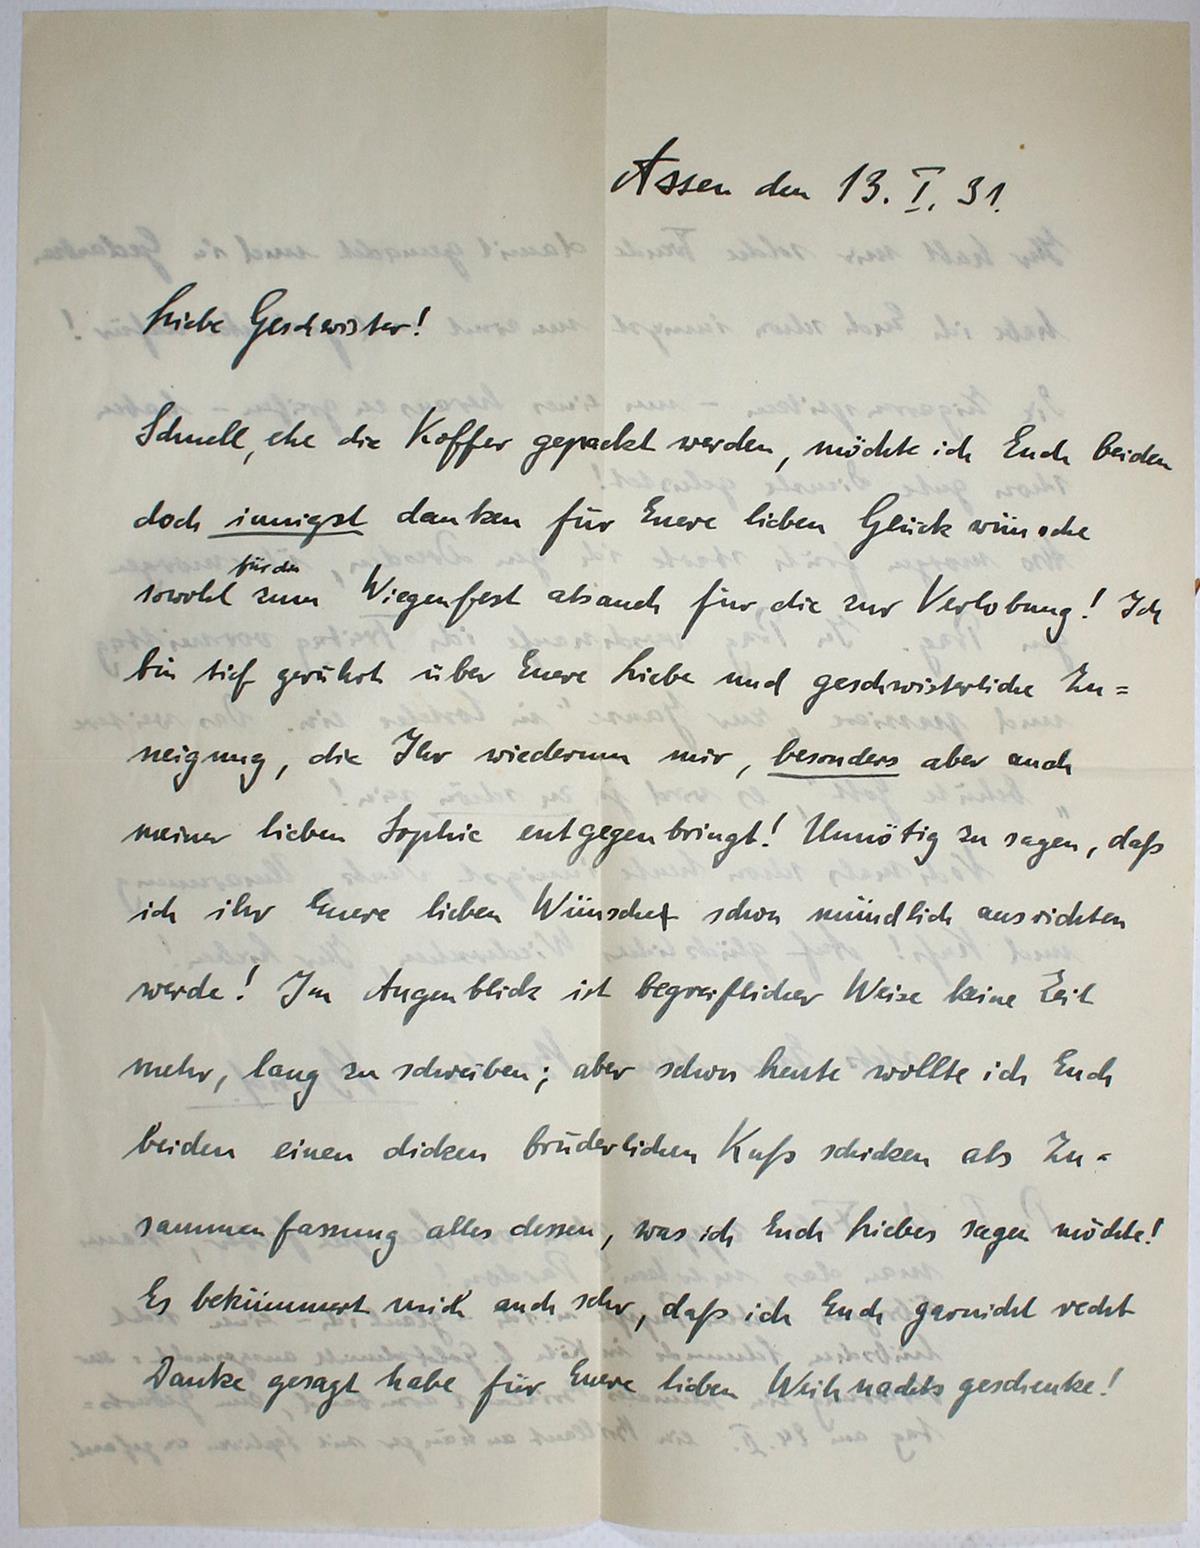 Assen den 13. I. 31.
Liebe Geschwister!
Schnell, ehe die Koffer gepackt werden, möchte ich Euch beiden
doch innigst danken für Euere lieben Glückwünsche
für den
sowohl zum Wiegenfest als auch für die zur Verlobung! Ich
bin tief gerührt über Euere Liebe und geschwisterliche Zu=
neigung, die Ihr wiederum mir, besonders aber auch
meiner lieben Sophie entgegenbringt! Unnötig zu sagen, daß
ich ihr Euere lieben Wünsche schon mündlich ausrichten
werde! Im Augenblick ist begreiflicher Weise keine Zeit
mehr, lang zu schreiben; aber schon heute wollte ich Euch
beiden einen dicken brüderlichen Kuß schicken als Zu=
sammenfassung alles dessen, was ich Euch Liebes sagen möchte!
Es bekümmert mich auch sehr, daß ich Euch garnicht recht
Danke gesagt habe für Euere lieben Weihnachtsgeschenke!